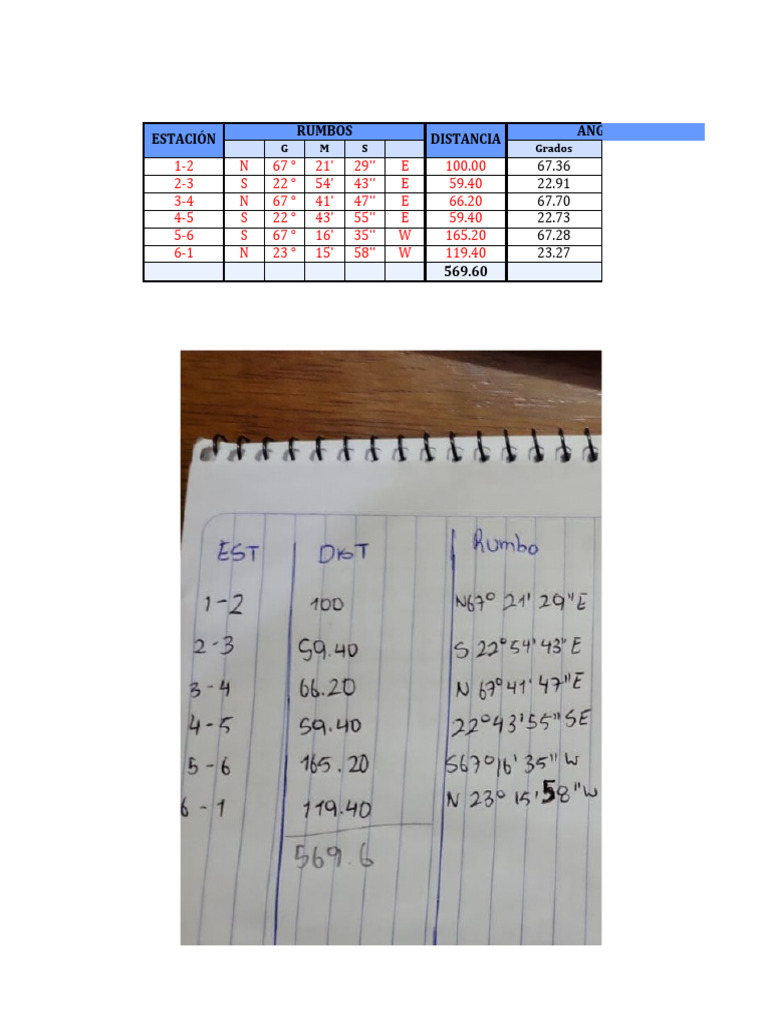 RUMBOS
ESTACIÓN DISTANCIA ANG
G M S Grados
1-2 N 67 ° 21' 29'' E 100.00 67.36
2-3 S 22 ° 54' 43'' E 59.40 22.91
3-4 N 67 ° 41' 47'' E 66.20 67.70
4-5 S 22 ° 43' 55'' E 59.40 22.73
5-6 S 67 ° 16' 35'' W 165.20 67.28
6-1 N 23 ° 15' 58'' W 119.40 23.27
569.60
EST DIST Rumbo
1-2 100 N67° 21' 29" E
2-3 59.40 S 22° 54' 43" E
3-4 66.20 N 67° 41' 47" E
4-5 59.40 22° 43' 55" SE
5-6 165.20 S67° 16' 35" W
6-1 119.40 N 23° 15' 58" W
569.6